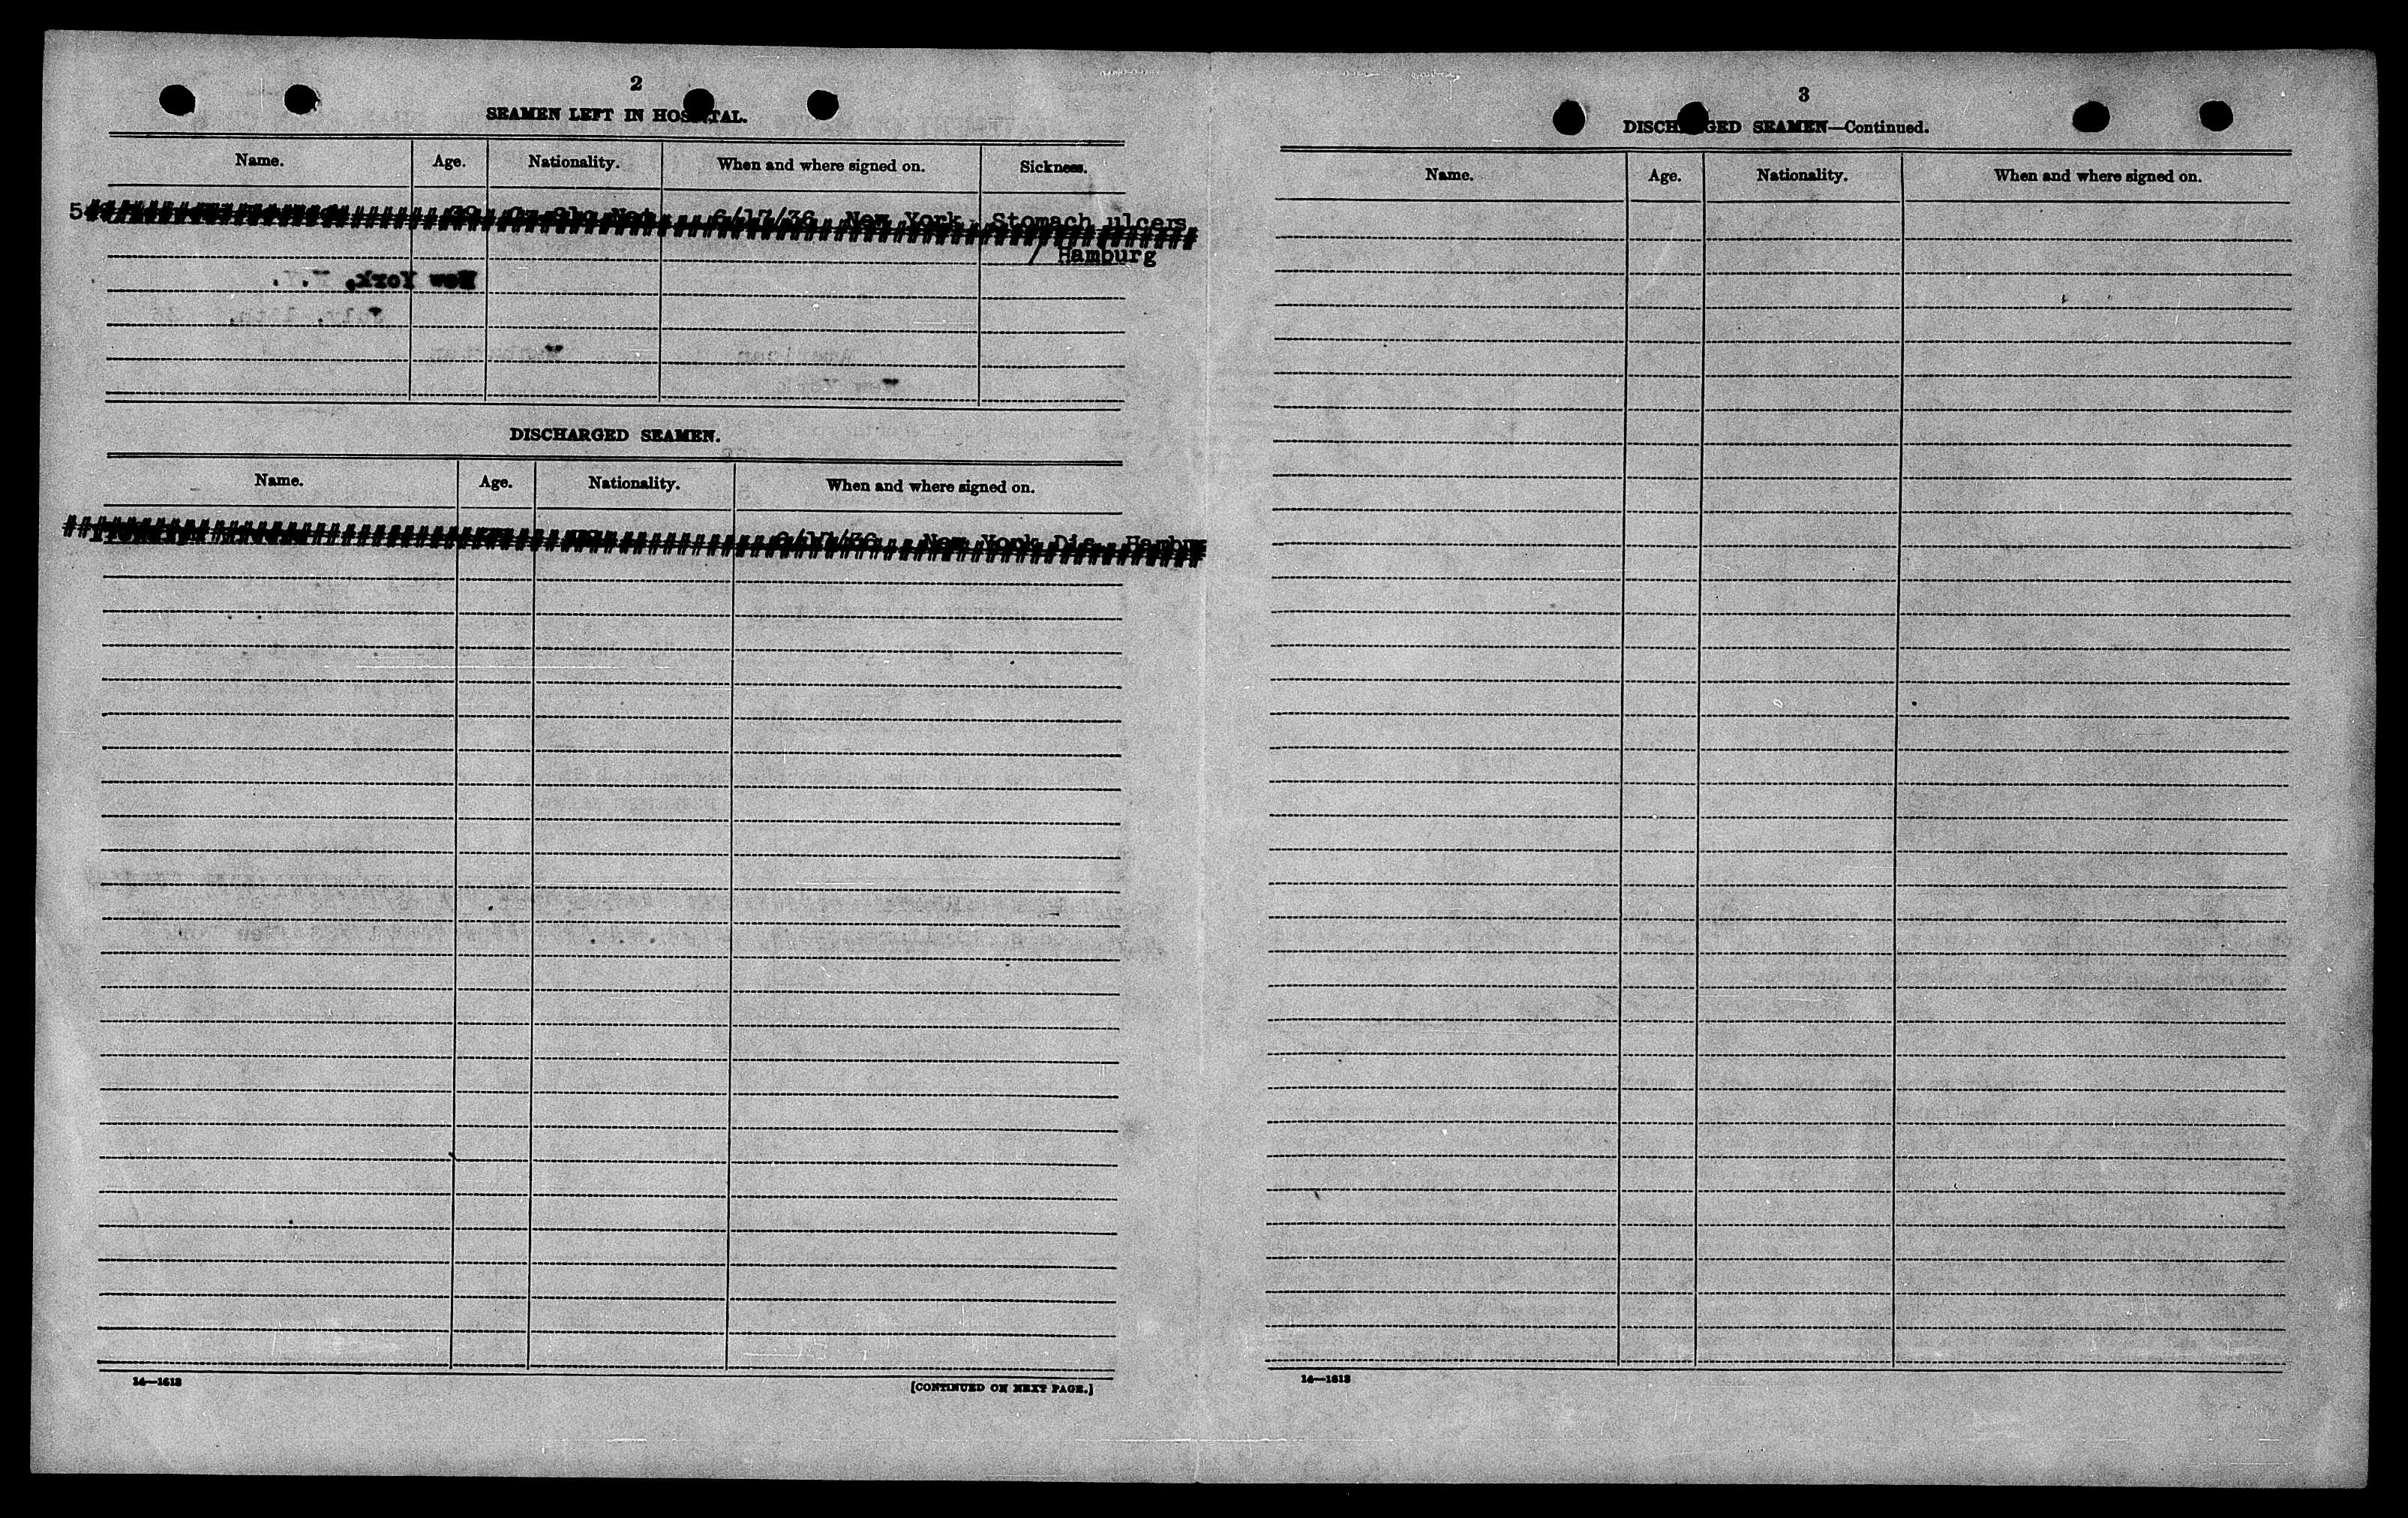 2
SEAMEN LEFT IN HOSPITAL.
Name. Age. Nationality. When and where signed on. Sickness.
5 39 6/17/36 New York Stomach ulcers
/ Hamburg
New York,
DISCHARGED SEAMEN.
Name. Age. Nationality. When and where signed on.
6/17/36 New York Dis. Hamburg
14—1613
[CONTINUED ON NEXT PAGE.]
3
DISCHARGED SEAMEN—Continued.
Name. Age. Nationality. When and where signed on.
14—1613